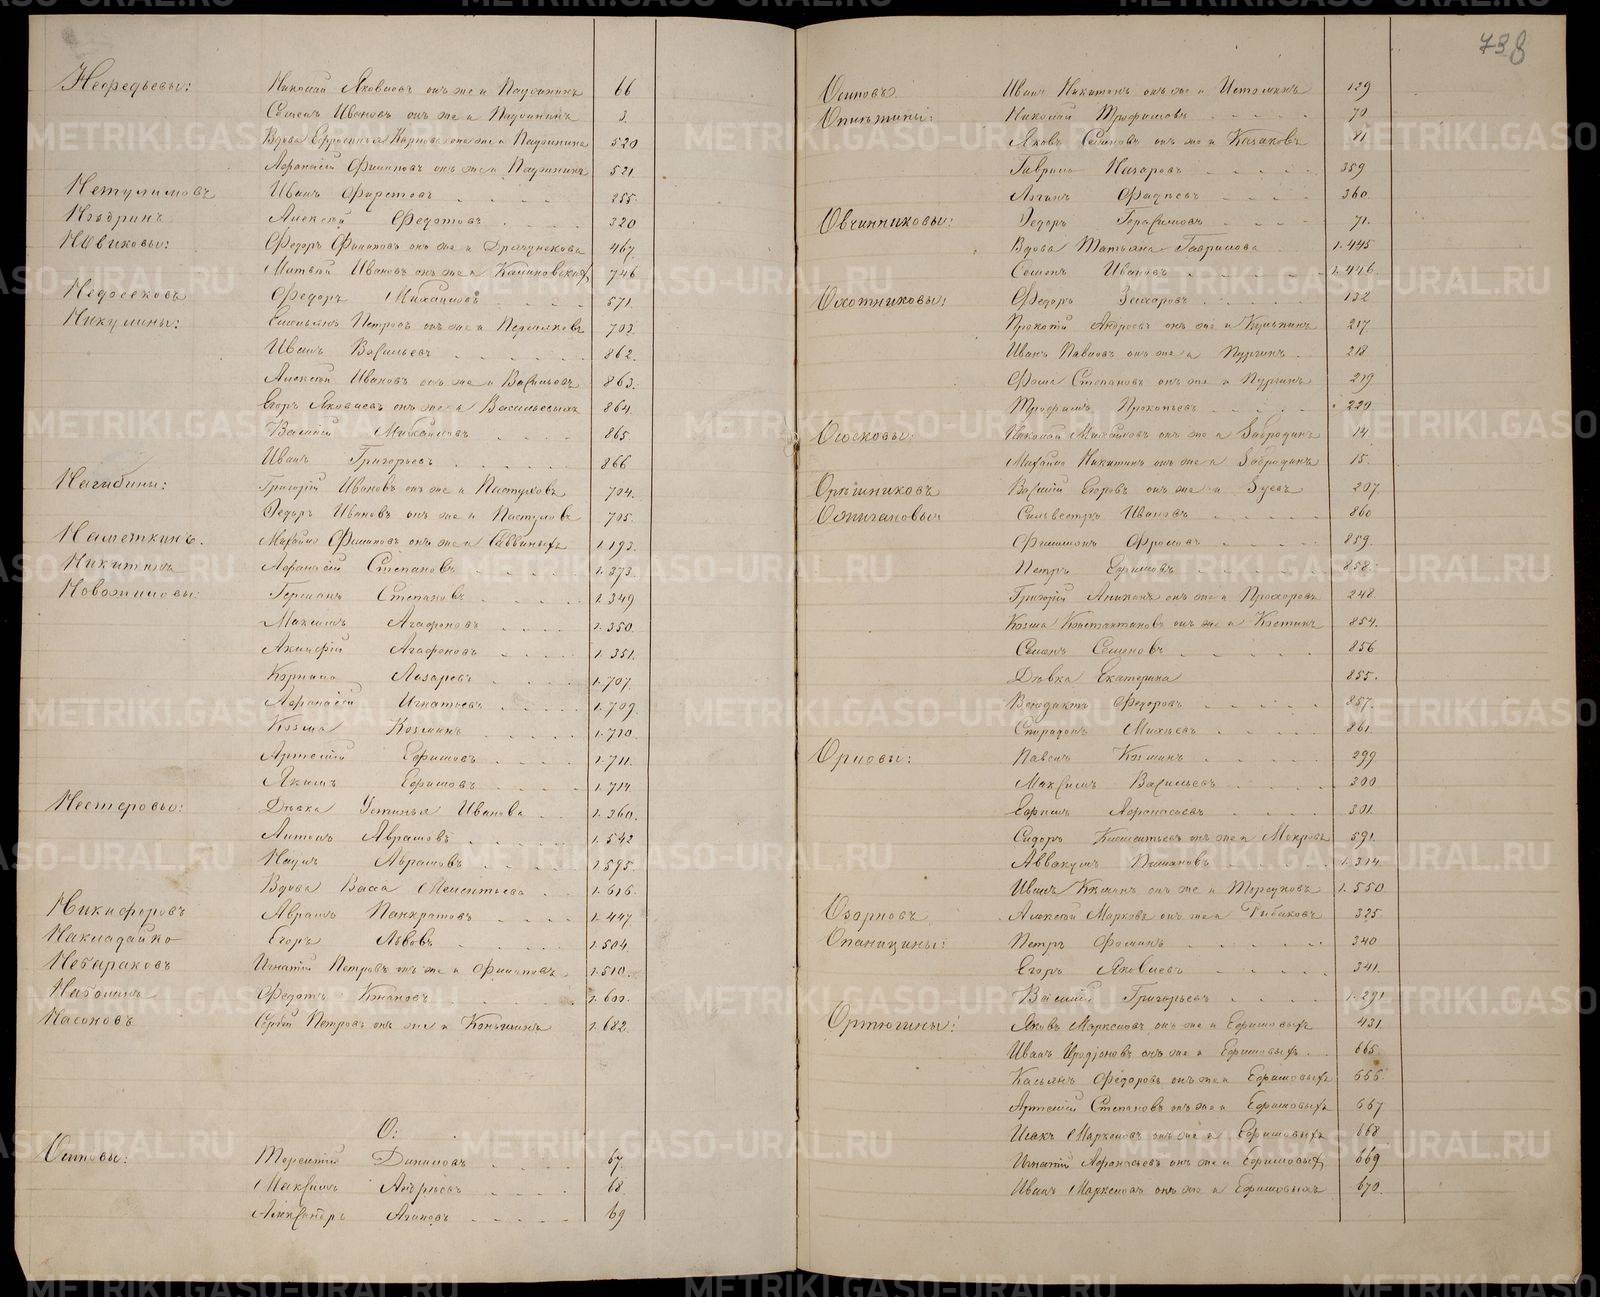 738
Нефедьевы: Николай Яковлевъ онъ же и Падринихъ 66
Семенъ Ивановъ онъ же и Падринихъ 3.
Вдова Ефросинья Карпова она же и Падринина 520
Афанасій Филиповъ онъ же и Падринихъ 521
Иванъ 255.
Алексѣй Федотовъ 320
Новиковы: Федоръ Филиповъ онъ же и 467.
Матвѣй Ивановъ онъ же и 746
Недосековъ Федоръ Михаиловъ 571.
Никулины: Емельянъ Петровъ онъ же и 703.
Иванъ Васильевъ 862.
Алексѣй Ивановъ онъ же и Васильевъ 863.
Егоръ Яковлевъ онъ же и Васильевыхъ 864.
Василій Михаиловъ 865.
Иванъ Григорьевъ 866
Нагибины: Григорій Ивановъ онъ же и Пастуховъ 704.
Федоръ Ивановъ онъ же и Пастуховъ 705.
Наметкинъ. Михайло Филиповъ онъ же и Саввиныхъ 1.193.
Никитинъ Афанасій Степановъ 1.373.
Новожиловы: Германъ Степановъ 1.349
Максимъ Агафоновъ 1.350.
Акинфій Агафоновъ 1.351.
Корнило Лазаревъ 1.707.
Афанасій Игнатьевъ 1.709.
Козма Козминъ 1.710.
Артемій Ефимовъ 1.711.
Якимъ Ефимовъ 1.714.
Нестеровы: Дѣвка Устинья Иванова 1.360.
Антонъ Абрамовъ 1.542
Наумъ Абрамовъ 1.595.
Вдова Васса Мелентьева 1.616.
Никифоровъ Абрамъ Панкратовъ 1.447.
Накладайко Егоръ Львовъ 1.504.
Небараковъ Игнатій Петровъ онъ же и Филиповъ 1.510.
Федотъ 1.600.
Насоновъ Сергѣй Петровъ онъ же и Коньшинъ 1.682.
О:
Осиповы: Терентій Даниловъ 67.
Максимъ Андреевъ 68
Александръ Агаповъ 69
Осиповъ Иванъ Никитинъ онъ же и Истоминъ 139
Николай Трофимовъ 70
Яковъ онъ же и Казаковъ 81
Гаврило Назаровъ 359
360.
Овчинниковы: Федоръ Герасимовъ 71.
Вдова Татьяна Гаврилова 1.445
Семенъ Ивановъ 1.446.
Охотниковы: Федоръ Захаровъ 132
Прокопій Андреевъ онъ же и 217
Иванъ Павловъ онъ же и Пургинъ 218
Фома Степановъ онъ же и Пургинъ 219
Трофимъ Прокопьевъ 220
Осоковы: Николай Михайловъ онъ же и Забродинъ 14
Михайло Никитинъ онъ же и Забродинъ 15.
Орѣшниковъ Василій Егоровъ онъ же и Зуевъ 207
Ожигановы Сильвестръ Ивановъ 860
Филимонъ Фроловъ 859.
Петръ Ефимовъ 858.
Григорій Аникинъ онъ же и Прохоровъ 248.
Козма Константиновъ онъ же и Костинъ 854.
Семенъ Семеновъ 856
Дѣвка Екатерина 855.
Венедиктъ Федоровъ 857.
Спиридонъ Михѣевъ 861
Орловы: Павелъ Козминъ 299
Максимъ Васильевъ 300
Ефимъ Афанасьевъ 301.
Сидоръ онъ же и Мокровъ 591.
Аввакумъ 1.314.
Иванъ Козминъ онъ же и Терсуковъ 1.550
Озорновъ Алексѣй Марковъ онъ же и Рыбаковъ 325
Опаницины: Петръ Фоминъ 340
Егоръ Яковлевъ 341.
Василій Григорьевъ 1.291
Ортюгины: Яковъ Маркеловъ онъ же и Ефимовыхъ 431.
Иванъ Иродіоновъ онъ же и Ефимовыхъ. 665
Касьянъ Федоровъ онъ же и Ефимовыхъ 666.
Артемій Степановъ онъ же и Ефимовыхъ 667
Исакъ Маркеловъ онъ же и Ефимовыхъ 668
Игнатій Афанасьевъ онъ же и Ефимовыхъ 669
Иванъ Маркеловъ онъ же и Ефимовыхъ 670.
METRIKI.GASO-URAL.RU